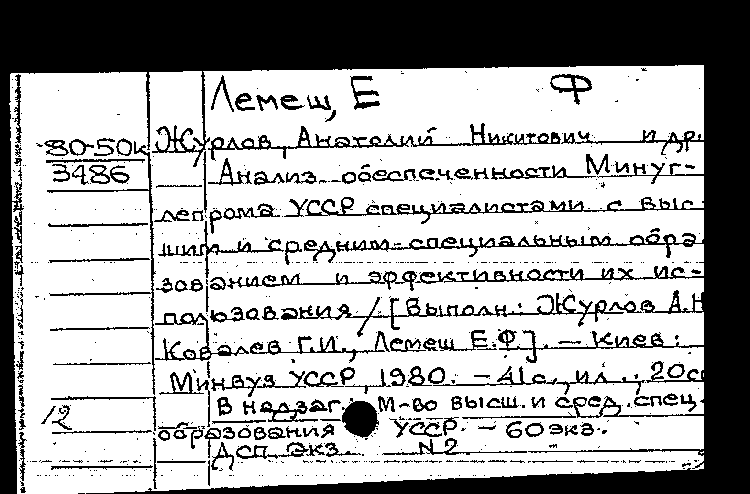 Лемеш, Е Ф
80-50к Журлов, Анатолий Никитович и др.
3486 Анализ обеспеченности Минуг-
лепрома УССР специалистами с выс-
шим и средним специальным обра
зованием и эффективности их ис-
пользования / [Выполн.: Журлов А.Н
Ковалев Г.И., Лемеш Е.Ф.]. — Киев:
Минвуз УССР, 1980. - 41с., ил.; 20с
В надзаг.: М-во высш. и сред. спец.
12 образования УССР. - 60 экз.
ДСП. экз. N2